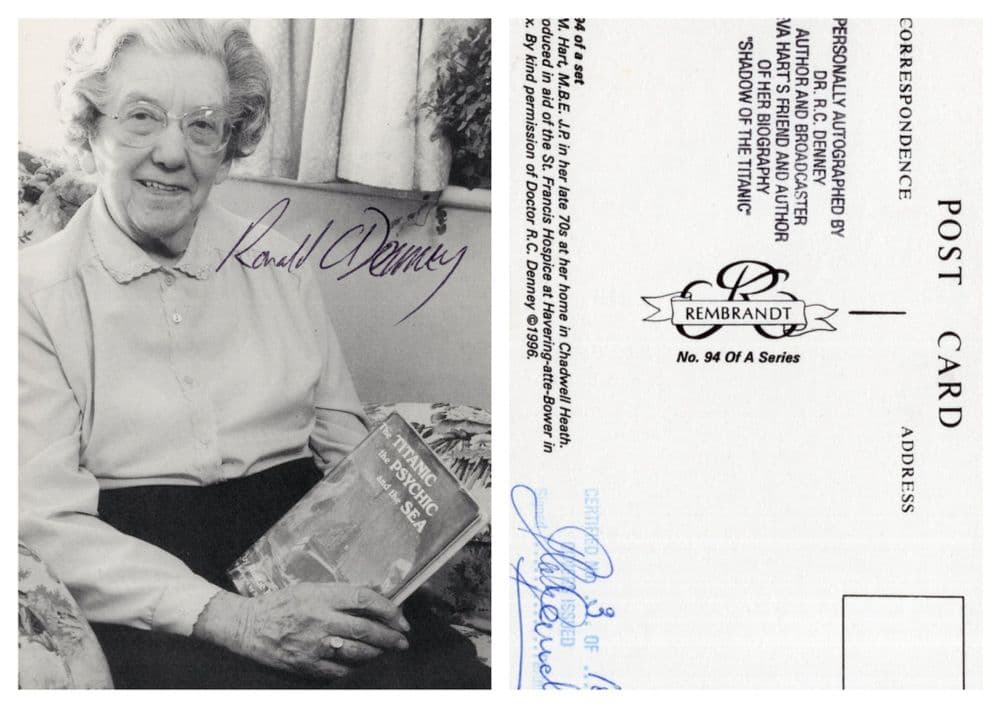 Ronald C Denney
The TITANIC
the PSYCHIC
and the SEA
94 of a set
M. Hart, M.B.E. J.P. in her late 70s at her home in Chadwell Heath.
oduced in aid of the St. Francis Hospice at Havering-atte-Bower in
x. By kind permission of Doctor R.C. Denney ©1996.
PERSONALLY AUTOGRAPHED BY
DR. R.C. DENNEY
AUTHOR AND BROADCASTER
VA HART'S FRIEND AND AUTHOR
OF HER BIOGRAPHY
"SHADOW OF THE TITANIC"
CORRESPONDENCE
POST CARD
ADDRESS
R
REMBRANDT
No. 94 Of A Series
CERTIFIED NO 3 OF
ISSUED
Signed